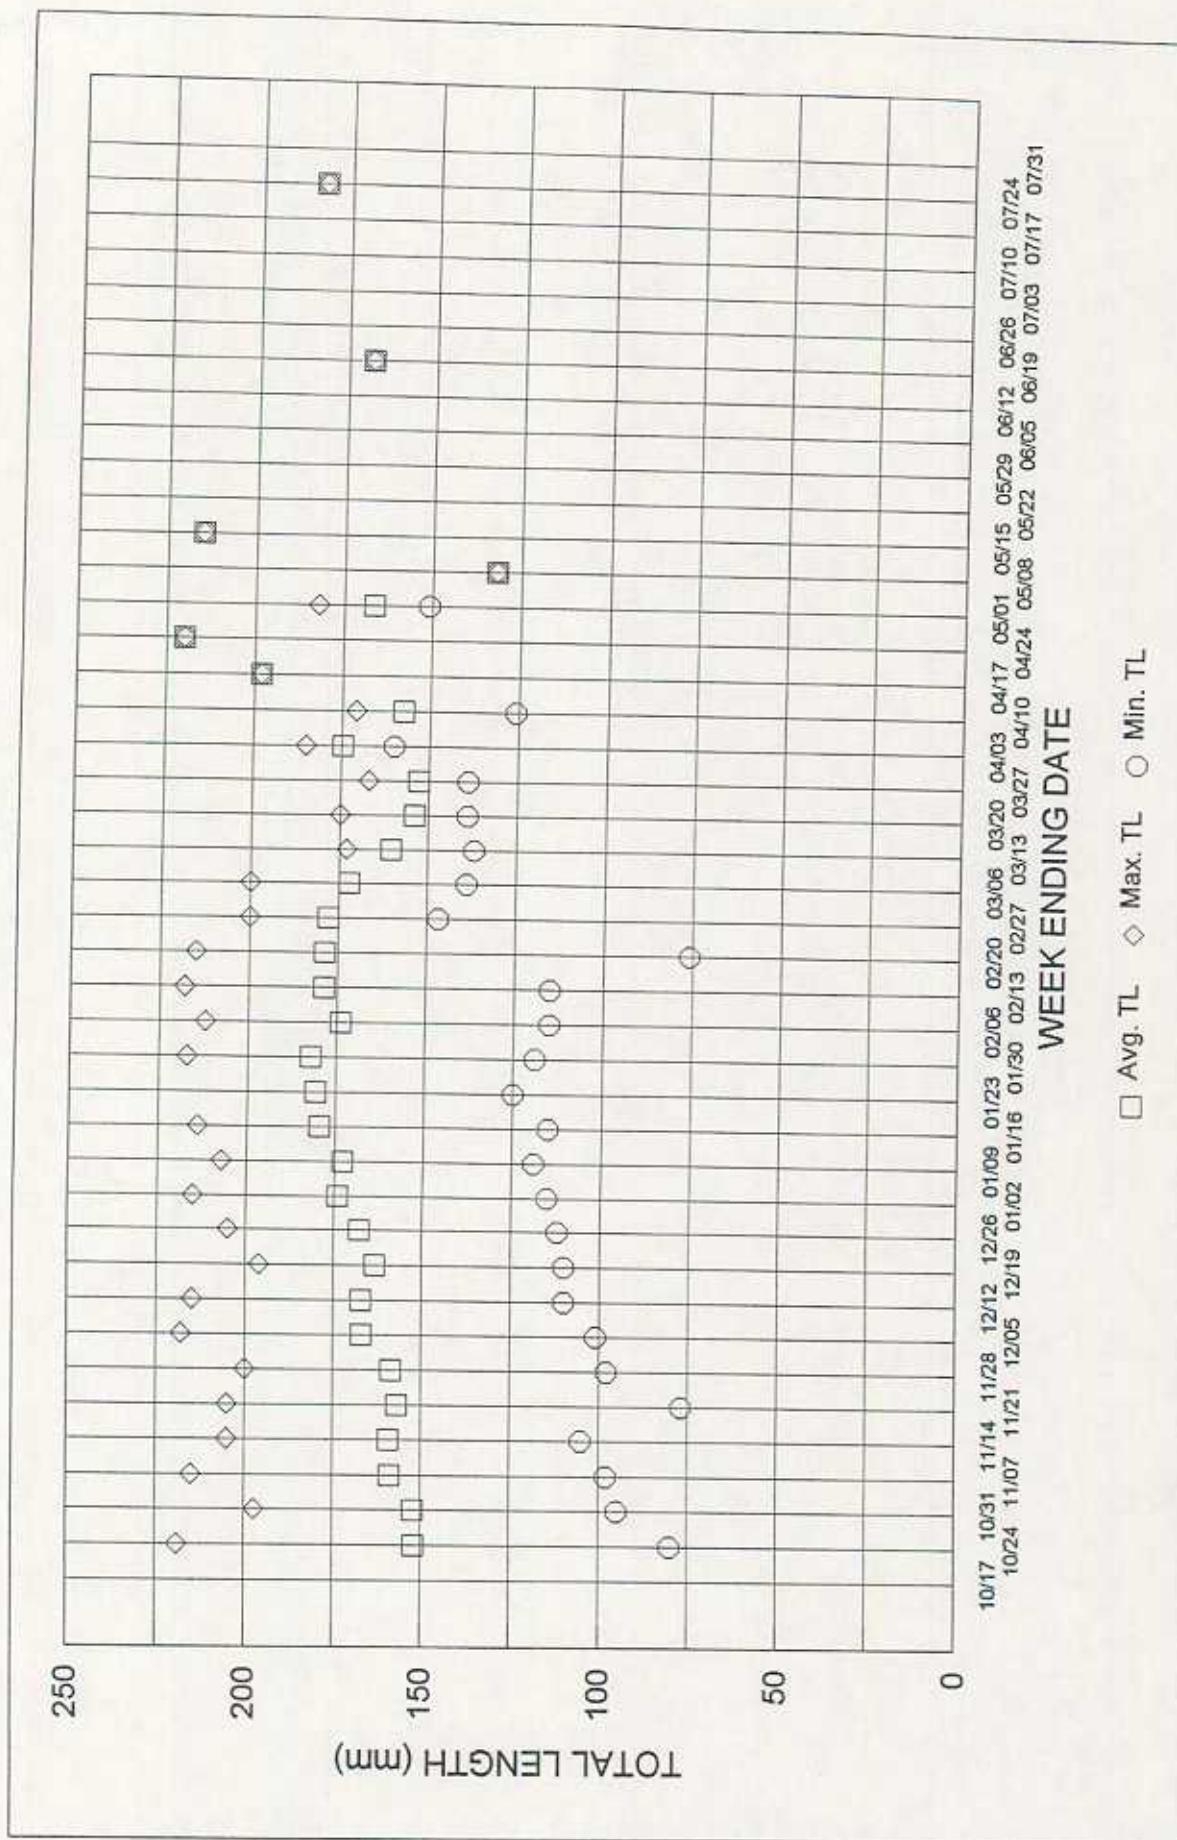 TOTAL LENGTH (mm)
250
200
150
100
50
0
10/17 10/31 11/14 11/28 12/12 12/26 01/09 01/23 02/06 02/20 03/06 03/20 04/03 04/17 05/01 05/15 05/29 06/12 06/26 07/10 07/24
10/24 11/07 11/21 12/05 12/19 01/02 01/16 01/30 02/13 02/27 03/13 03/27 04/10 04/24 05/08 05/22 06/05 06/19 07/03 07/17 07/31
WEEK ENDING DATE
Avg. TL Max. TL Min. TL